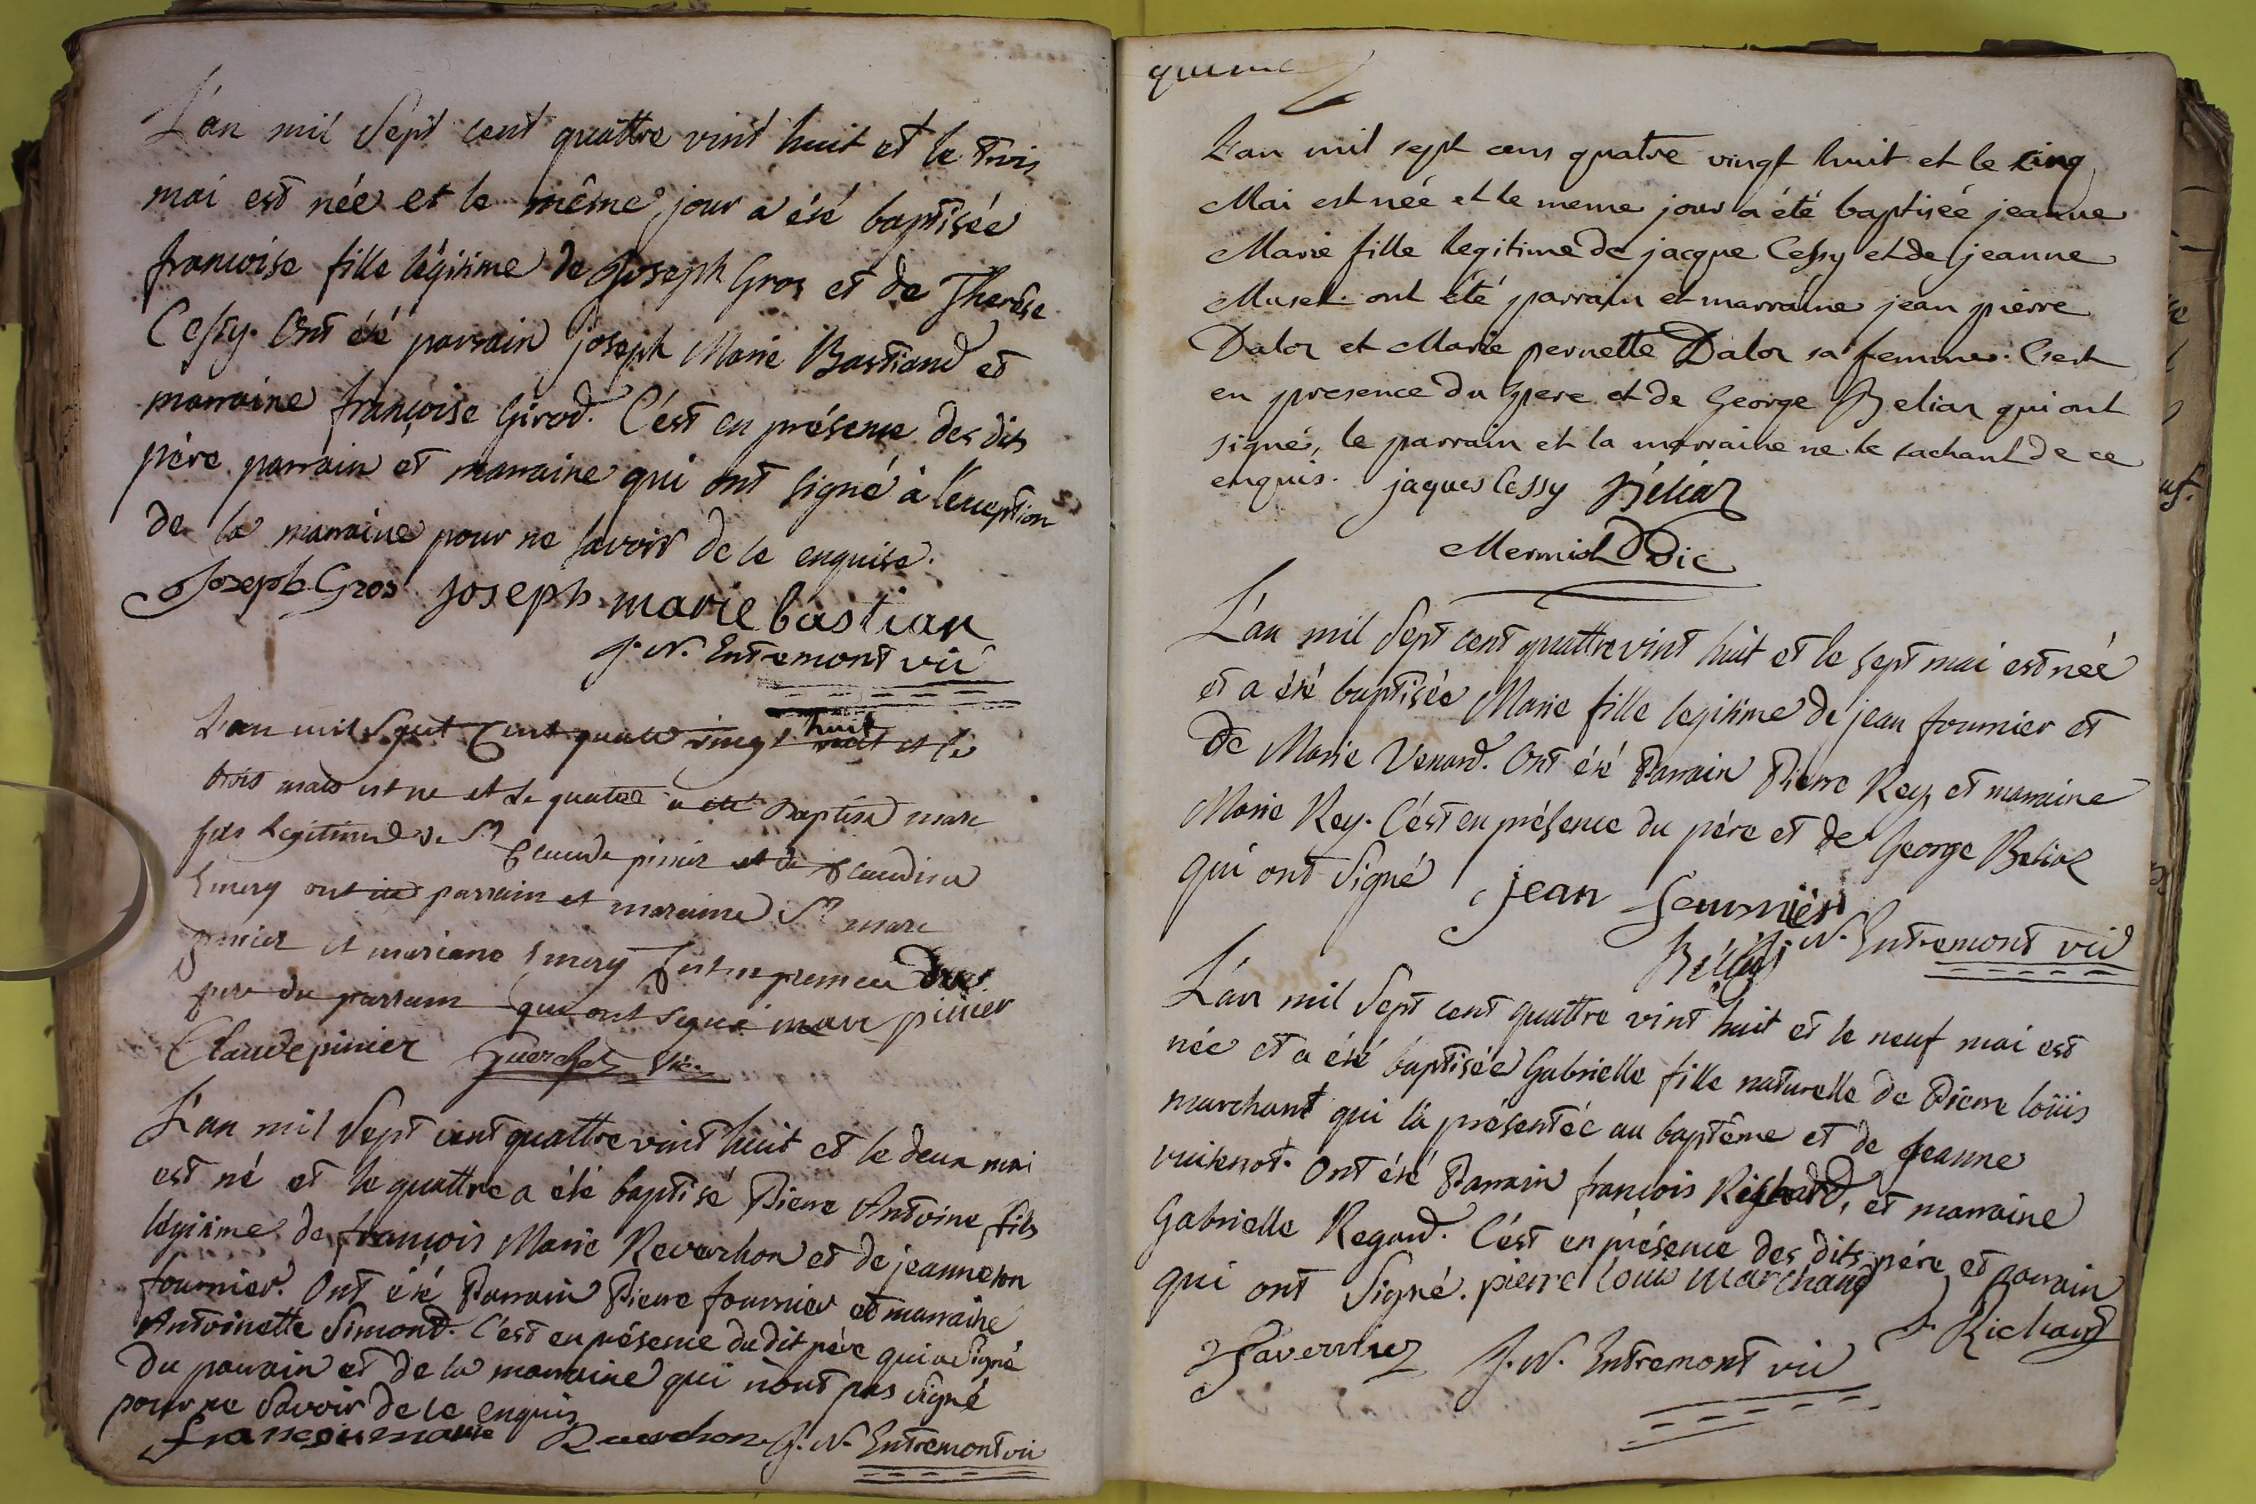 L'an mil sept cent quattre vint huit et le trois
mai est née et le même jour a été baptisée
francoise fille légitime de Joseph Gros et de Therêse
Cessy. Ont été parrain joseph Marie Bastiand et
marraine françoise Girod. C'est en présence des dits
père parrain et marraine qui ont signé à l'exception
de la marraine pour ne savoir de ce enquise.
Joseph Gros joseph marie bastian
J. N. Entremont vic
L'an mil sept cent quatre vingt huit et le
trois mais est ne et le quatre a été baptisé marc
fils legitime de Sr Claude pinier et de Claudina
Emery ont été parrain et maraine Sr marc
pinier et mariane Emery C'est en presence du
pere du parrain qui ont signé marc pinier
Claude pinier Guerchet vic.
L'an mil sept cent quattre vint huit et le deux mai
est né et le quattre a été baptisé Pierre Antoine fils
légitime de françois Marie Reverchon et de jeanneton
fournier. Ont été Parrain Pierre fournier et marraine
Antoinette Simond. C'est en présence du dit père qui a signé
du parrain et de la marraine qui n'ont pas signé
pour ne savoir de ce enquis
francoi marie Reverchon J. N. Entremont vic
L'an mil sept cens quatre vingt huit et le cinq
Mai est née et le meme jour a été baptisée jeanne
Marie fille legitime de jacque Cessy et de jeanne
Muset. ont été parrain et marraine jean pierre
Daloz et Marie pernette Daloz sa femme. C'est
en presence du pere et de George Beliaz qui ont
signé, le parrain et la marraine ne le sachant de ce
enquis. jaques Cessy Béliaz
Mermid Vic
L'an mil sept cent quattre vint huit et le sept mai est née
et a été baptisée Marie fille legitime de jean fournier et
de Marie Venard. Ont été Parrain Pierre Rey, et marraine
Marie Rey. C'est en présence du père et de George Beliaz
qui ont signé jean fournier
Béliaz J. N. Entremont vic
L'an mil sept cent quattre vint huit et le neuf mai est
née et a été baptisée Gabrielle fille naturelle de Pierre loüis
marchant qui l'a présentée au baptême et de Jeanne
vuisnot. Ont été Parrain françois Richard, et marraine
Gabrielle Regard. C'est en présence des dits père et parrain
qui ont signé. pierre louis marchand
f. Richard
J. N. Entremont vic